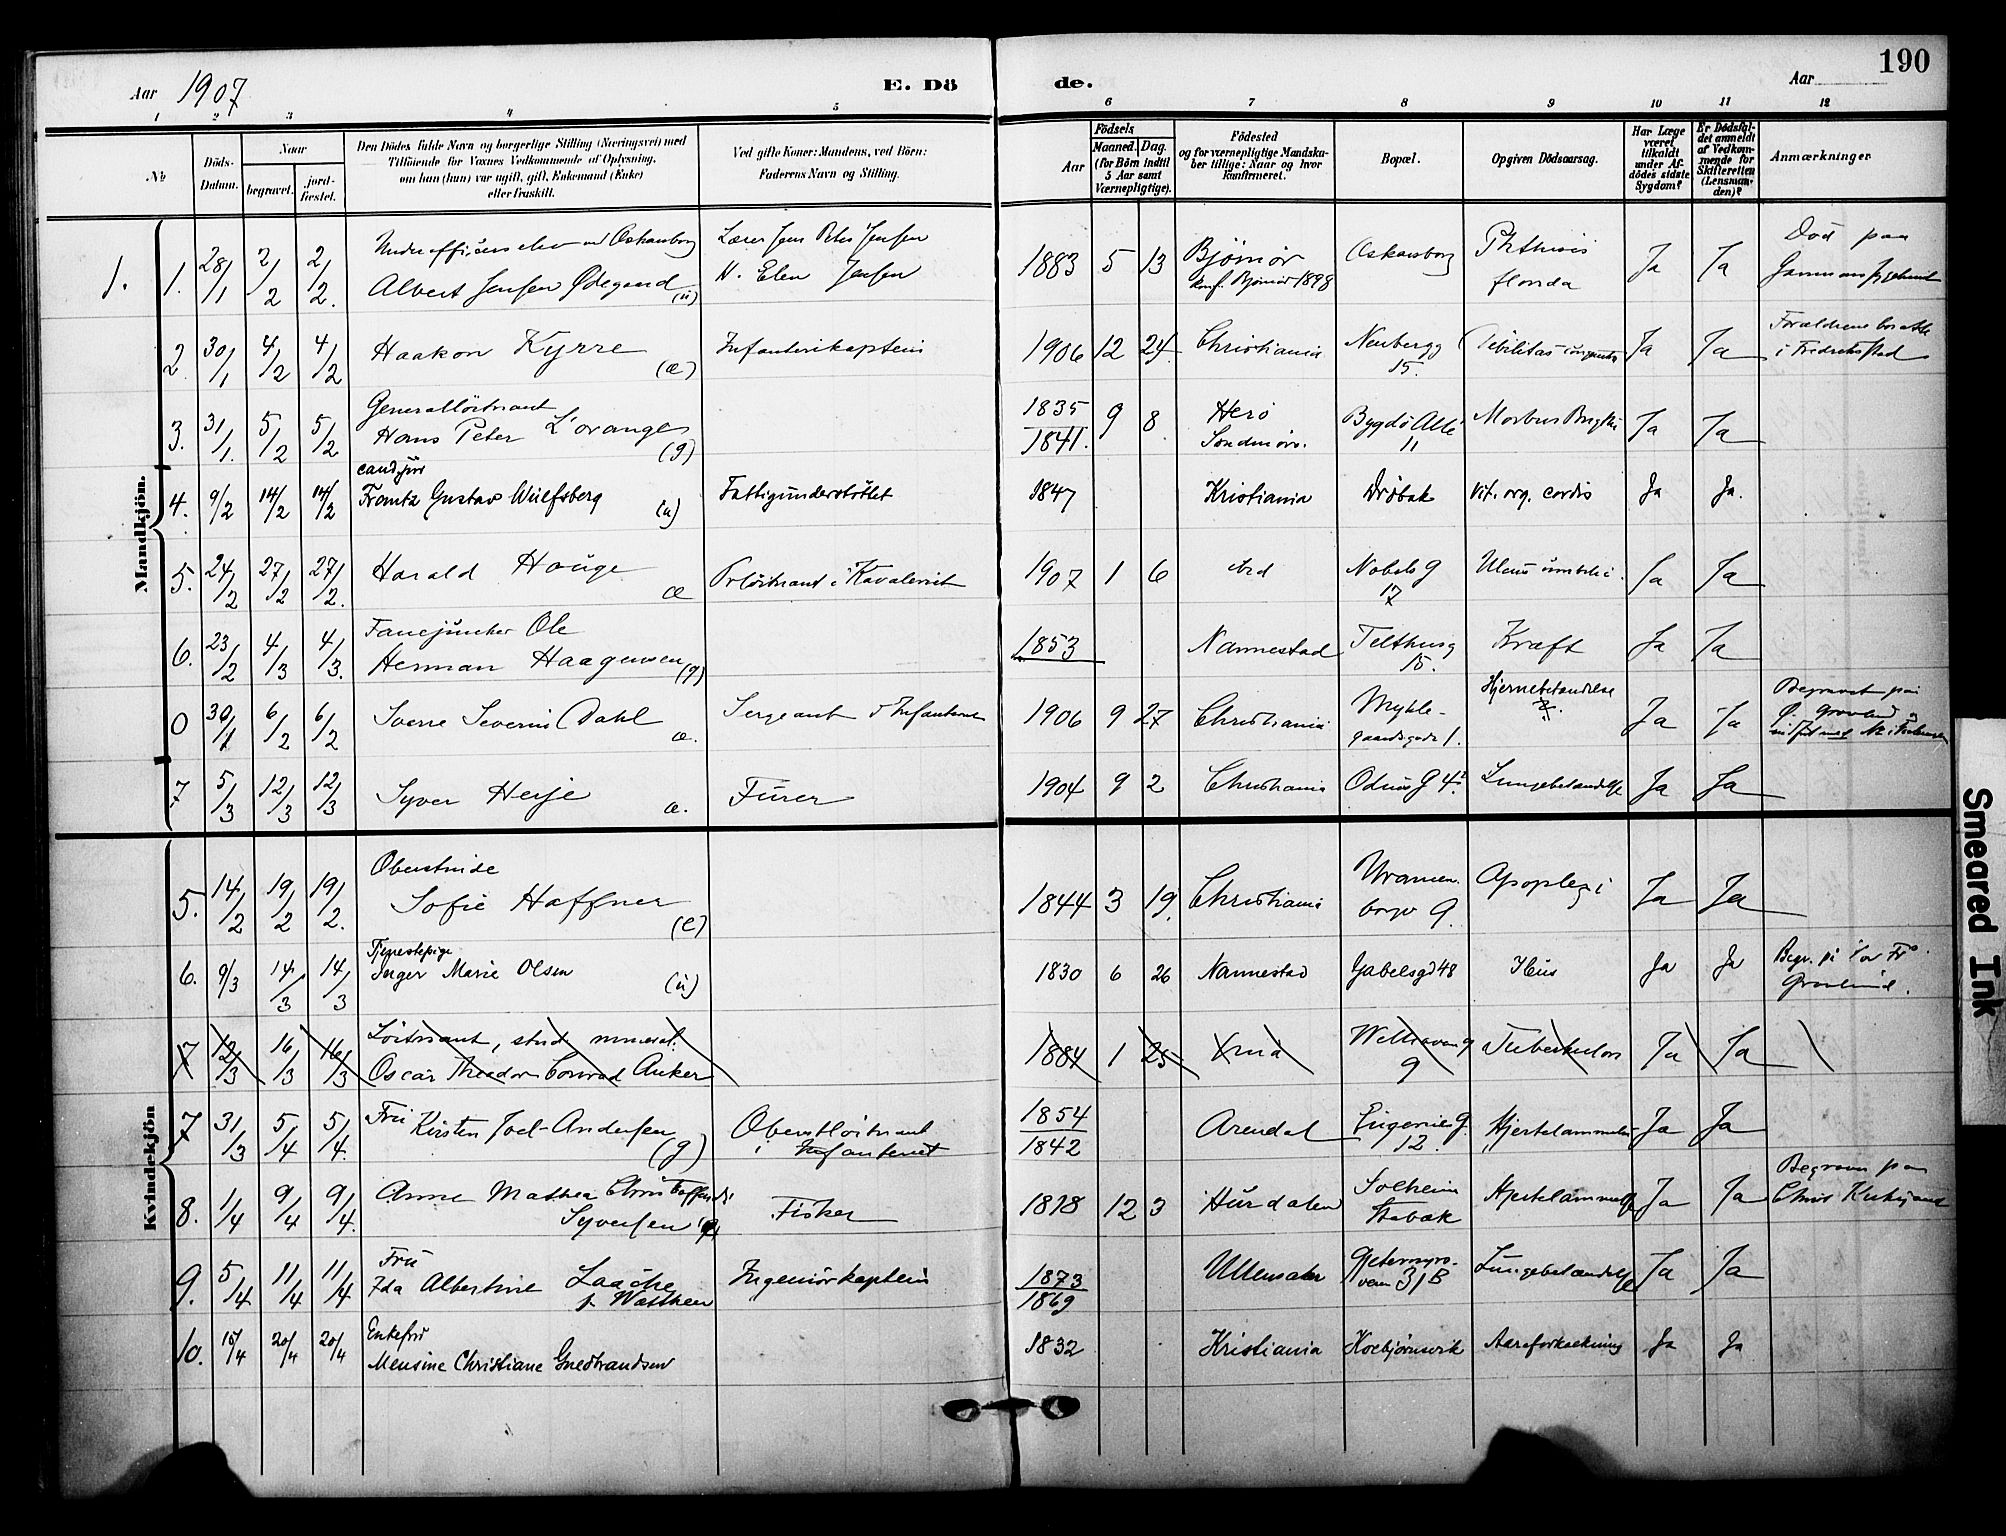 190
Aar 1907
E. Dö de.
Aar
1 2 3 4 5 6 7 8 9 10 11 12
No
Döds-Datum.
Naar
begravet.
jord-fæstet.
Den Dödes fulde Navn og borgerlige Stilling (Næringsvei) med
Tilföiende for Voxnes Vedkommende af Oplysning,
om han (hun) var ugift, gift, Enkemand (Enke)
eller fraskilt.
Ved gifte Koner: Mandens, ved Börn:
Faderens Navn og Stilling.
Födsels
Aar
Maaned. Dag.
(for Börn indtil
5 Aar samt
Værnepligtige).
Födested
og for værnepligtige Mandska-
ber tillige: Naar og hvor
konfirmeret.
Bopæl.
Opgiven Dödsaarsag.
Har Læge
været
tilkaldt
under Af-
dödes sidste
Sygdom?
Er Dödsfal-
det anmeldt
af Vedkom-
mende for
Skifteretten
(Lensman-
den)?
Anmærkninger
Mandkjön.
1. 1. 28/1 2/2 2/2. Underofficerselev ved Oskarsborg
Albert Jensen Ødegaard (u)
Lærer Jens Peter Jensen
Elen Jensen
1883 5 13 Bjørnör
konf. Bjørnör 1898
Oskarsborg
Phthisis
florida
Ja Ja
Död paa
2. 30/1 4/2 4/2 Haakon Kyrre (æ) Infanterikaptein
1906 12 24. Christiania Neubergg
15. Debilitas Ja Ja
Forældrene bosatte
i Fredriksstad
3. 31/1. 5/2 5/2 Generalløitnant
Hans Peter L'orange (g)
1835/1841. 9 8. Herö
Söndmöre.
Bygdö Allé
11
Morbus Brightii Ja Ja
4. 9/2 14/2 14/2 cand jur
Frantz Gustav Wulfsberg (u) Fattigunderstöttet
1847 Kristiania Dröbak Vit. org. cordis Ja Ja.
5. 24/2 27/2 27/2. Harald Houge æ Prløitnant i Kavaleriet
1907 1 6 Nobels g
17 Ulcus umbilici. Ja Ja
6. 23/2 4/3 4/3. Fanejunker Ole
Herman Haagensen (g)
1853 Nannestad Telthusg
15. Kræft Ja Ja
0 30/1 6/2 6/2 Sverre Severin Dahl æ. Sergeant i Infanteriet
1906 9 27 Christiania Mykle-
gaardsgade 1. Hjernebetændelse Ja Ja
Begravet paa
7. 5/3 12/3 12/3 Syver Herje æ. Furer
1904 9 2 Christiania Odins G 4 Lungebetændelse Ja Ja
Kvindekjön
5. 14/2 19/2 19/2. Oberstinde
Sofie Haffner (e)
1844 3 19. Christiania Uranien-
borgv 9. Apoplexi Ja Ja
6. 9/3 14/3 14/3 Tjenestepige
Inger Marie Olsen (u)
1830 6 26 Nannestad Gabelsgd 48 Ileus Ja Ja
7 12/3 16/3 16/3 Löitnant, stud. mineral.
Oscar Theodor Conrad Anker
1884 1 25 9 Tuberkulos Ja Ja
7 31/3 5/4 5/4. Fru Kirsten Joel-Andersen (g)
Oberstløitnant
i Infanteriet
1854/1842 Arendal Eugenies G.
12. Hjertelammelse Ja Ja
8. 1/4 9/4 9/4. Anne Mathea
Syversen Fisker
1818 12 3 Hurdalen Solheim
Stabæk Hjertelammelse Ja Ja
Begraves paa
9. 5/4 11/4 11/4 Fru
Ida Albertine Laache
f. Watthen Ingeniörkaptein
1873/1869 Ullensaker Gjetemyrs-
veien 31B Lungebetændelse Ja Ja
10. 15/4 20/4 20/4 Enkefru
Mensine Christiane Guldbrandsen
1832 Kristiania Holbjörnsvik Aareforkalkning Ja Ja
Smeared Ink